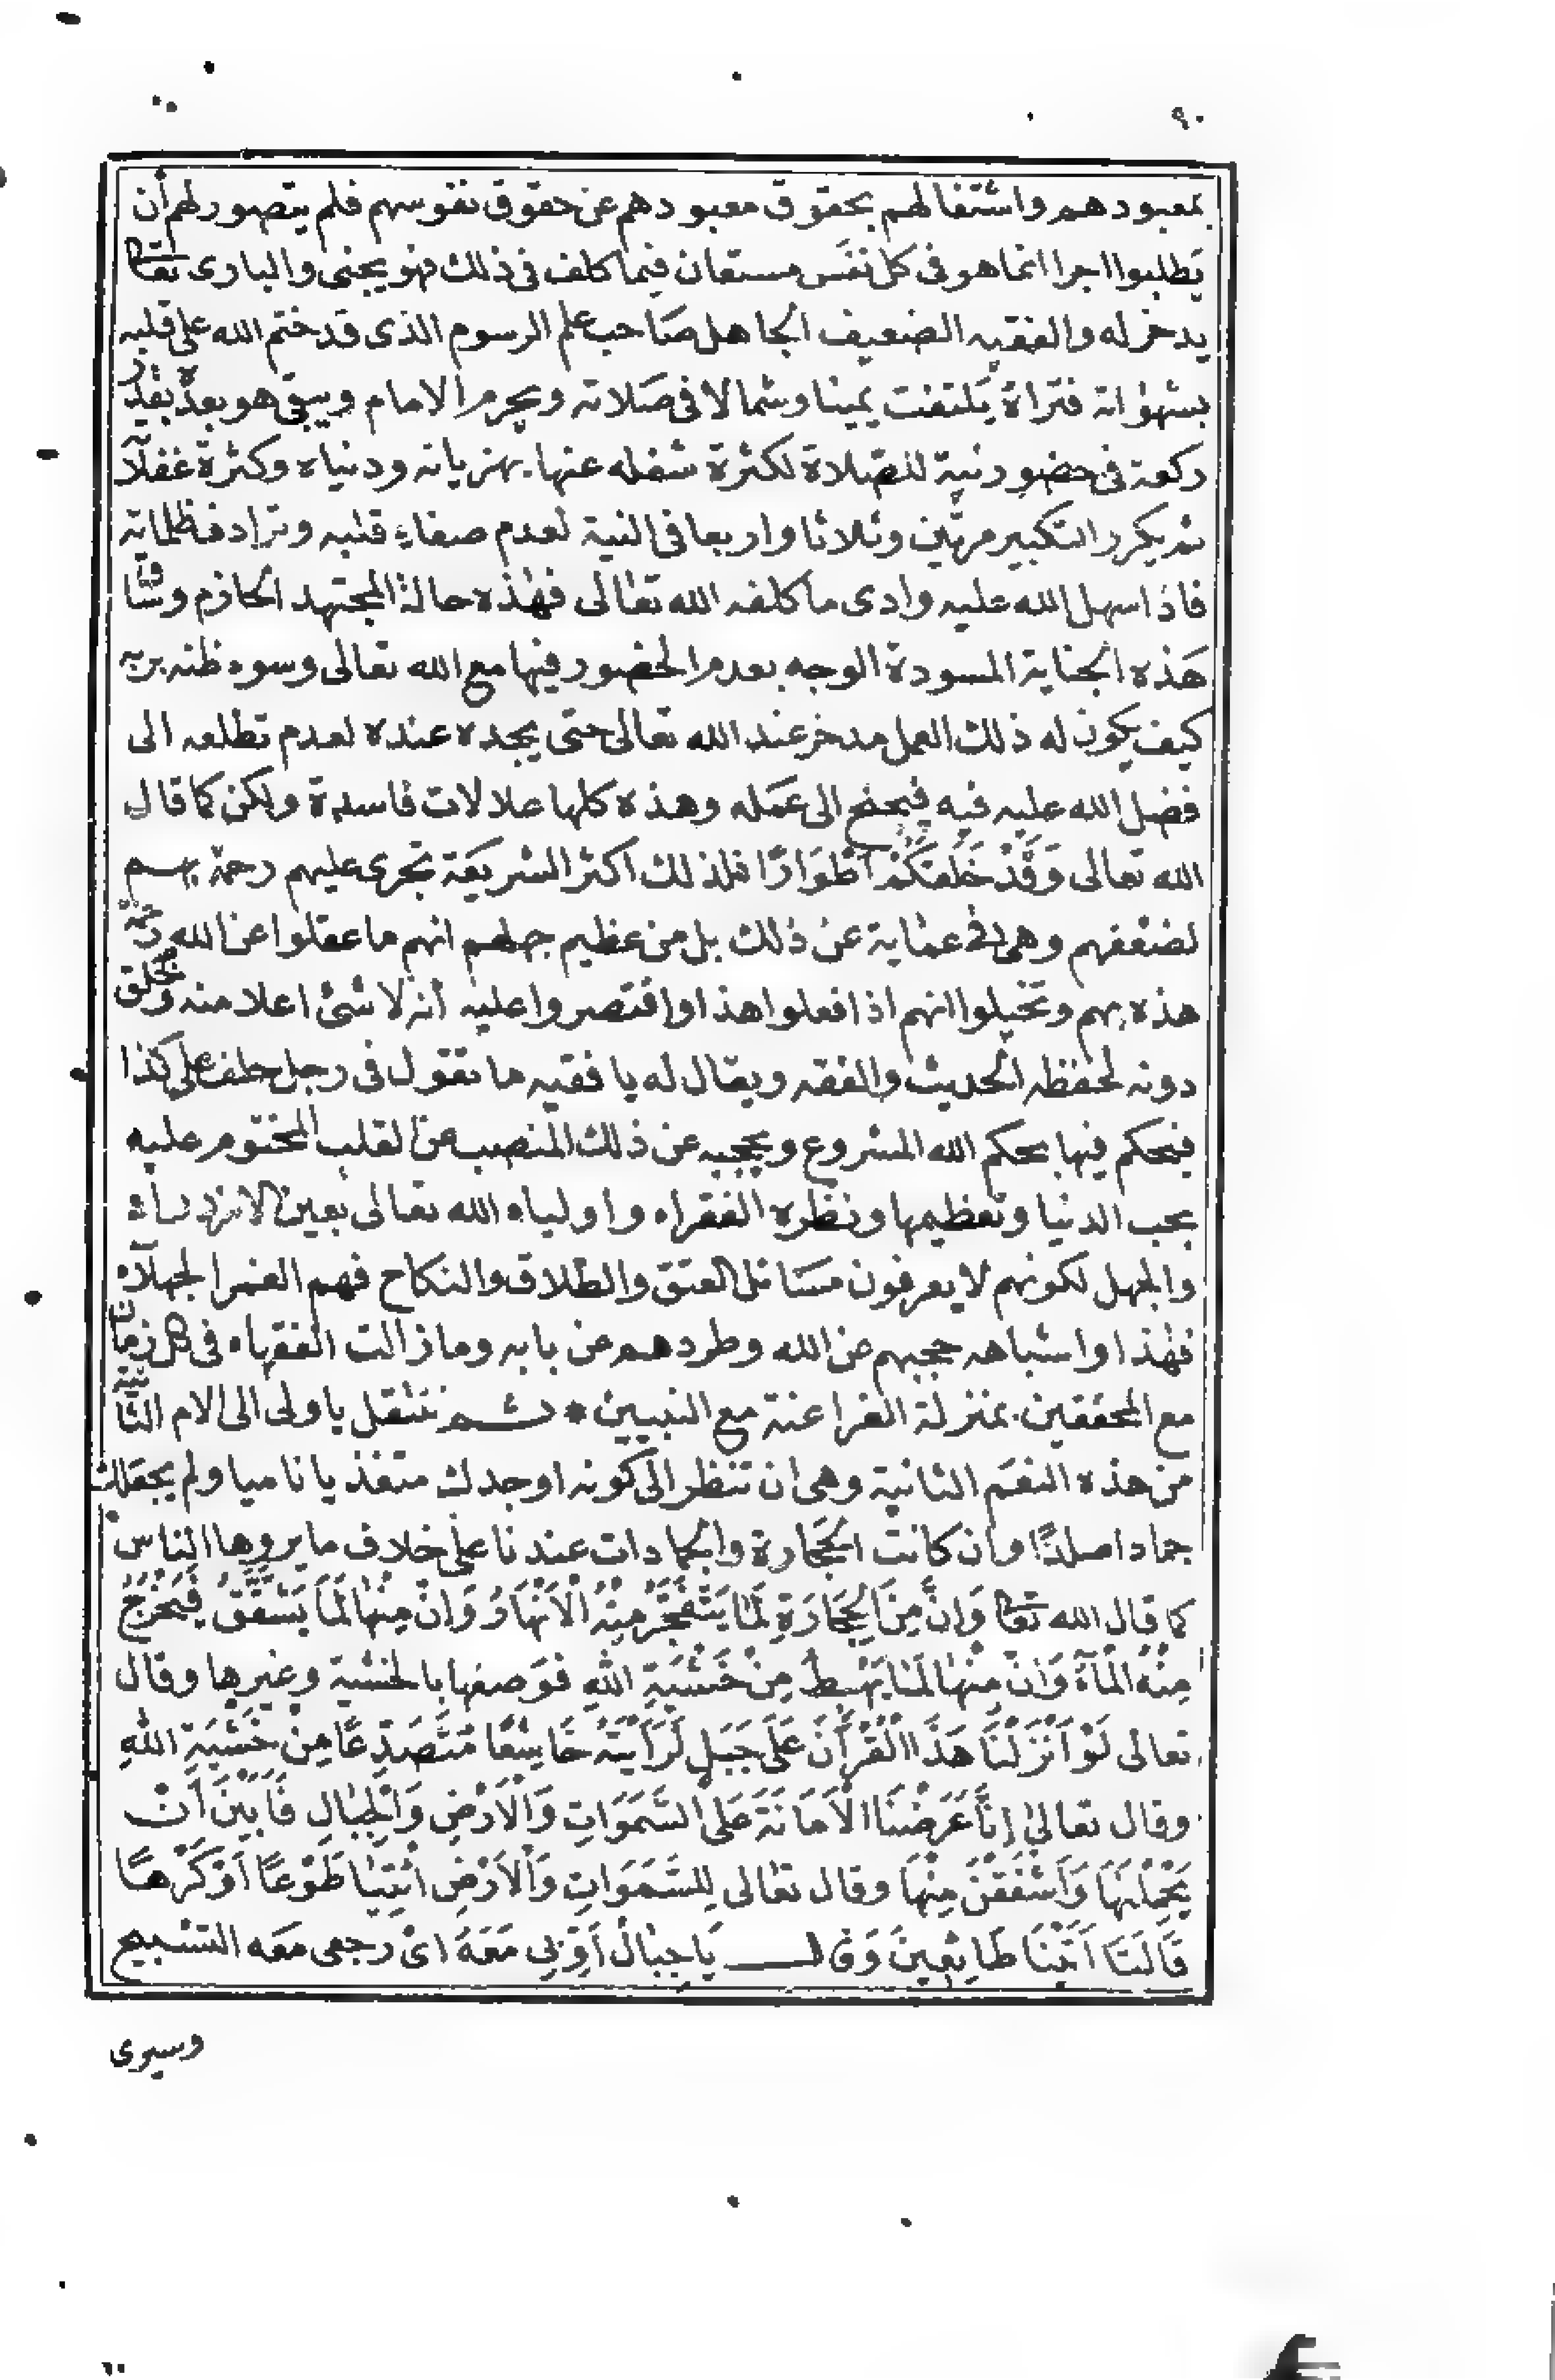 ٩٠
بمعبودهم واشتغالهم بحقوق معبودهم عن حقوق نفوسهم فلم يتصور لهم أن
يطلبوا اجرا انما هو فى كل نفس مستعان فيما كلف فى ذلك فهو يجنى والبارى تعالى
يدخر له والفقيه الضعيف الجاهل صاحب علم الرسوم الذى قد ختم الله على قلبه
بشهواته فتراة يلتفت يمينا وشمالا فى صلاته ويحرم الامام ويبقى هو بعده بقدر
ركعة فى حضور نية للصلاة لكثرة شغله عنها بهزيانه ودنياه وكثرة غفلاته
ثم يكرر التكبير مرتين وثلاثا واربعا فى النية لعدم صفاء قلبه وترادف ظلماته
فاذا سهل الله عليه وادى ما كلفه الله تعالى فهذه حالة المجتهد الحازم
هذه الجناية المسودة الوجه بعدم الحضور فيها مع الله تعالى وسوء ظنه بربه
كيف يكون له ذلك العمل مدخر عند الله تعالى حتى يجده عنده لعدم تطلعه الى
فضل الله عليه فيه فيجنح الى عمله وهذه كلها علالات فاسدة ولكن كما قال
الله تعالى وَقَدْ خَلَقَكُمْ أَطْوَارًا فلذلك اكثر الشريعة تجرى عليهم رحمة بهم
لضعفهم وهى فى عماية عن ذلك بل من عظيم جهلهم انهم ما عقلوا عن الله رحمته
هذه بهم وتخيلوا انهم اذا فعلوا هذا واقتصروا عليه أنه لا شئ اعلا منه والخلق
دونه لحفظه الحديث والفقه ويقال له يا فقيه ما تقول فى رجل حلف على كذا
فيحكم فيها بحكم الله المشروع ويحجبه عن ذلك المنصب عن القلب المختوم عليه
بحب الدنيا وتعظيمها ونظره الفقراء واولياء الله تعالى بعين الازدراء
والجهل لكونهم لا يعرفون مسائل العتق والطلاق والنكاح فهم الغمر الجهلاء
فهذا واشباهه حجبهم عن الله وطردهم عن بابه وما زالت الفقهاء فى كل زمان
مع المحققين بمنزلة الفراعنة مع النبيين * ثم ننتقل يا ولى الى الام الثانية
من هذه النعم الثانية وهى ان تنظر الى كونه اوجدك متغذيا ناميا ولم يجعلك
جمادا صلدًا وان كانت الحجارة والجمادات عندنا على خلاف ما يروها الناس
كما قال الله تعالى وَإِنَّ مِنَ الْحِجَارَةِ لَمَا يَتَفَجَّرُ مِنْهُ الْأَنْهَارُ وَإِنَّ مِنْهَا لَمَا يَشَّقَّقُ فَيَخْرُجُ
مِنْهُ الْمَآءُ وَإِنَّ مِنْهَا لَمَا يَهْبِطُ مِنْ خَشْيَةِ اللهِ فوصفها بالخشية وغيرها وقال
تعالى لَوْ اَنْزَلْنَا هَذَا الْقُرْأٰنَ عَلَى جَبَلٍ لَرَأَيْتَهُ خَاشِعًا مُتَصَدِّعًا مِنْ خَشْيَةِ اللهِ
وقال تعالى إِنَّا عَرَضْنَا الْأَمَانَةَ عَلَى السَّمَوَاتِ وَالْأَرْضِ وَالْجِبَالِ فَأَبَيْنَ أَنْ
يَحْمِلْنَهَا وَأَشْفَقْنَ مِنْهَا وقال تعالى لِلسَّمَوَاتِ وَالْأَرْضِ ائْتِيَا طَوْعًا أَوْ كَرْهًا
قَالَتَا أَتَيْنَا طَائِعِينَ وَقال يَا جِبَالُ أَوِّبِى مَعَهُ اى رجعى معه التسبيح
وسيرى